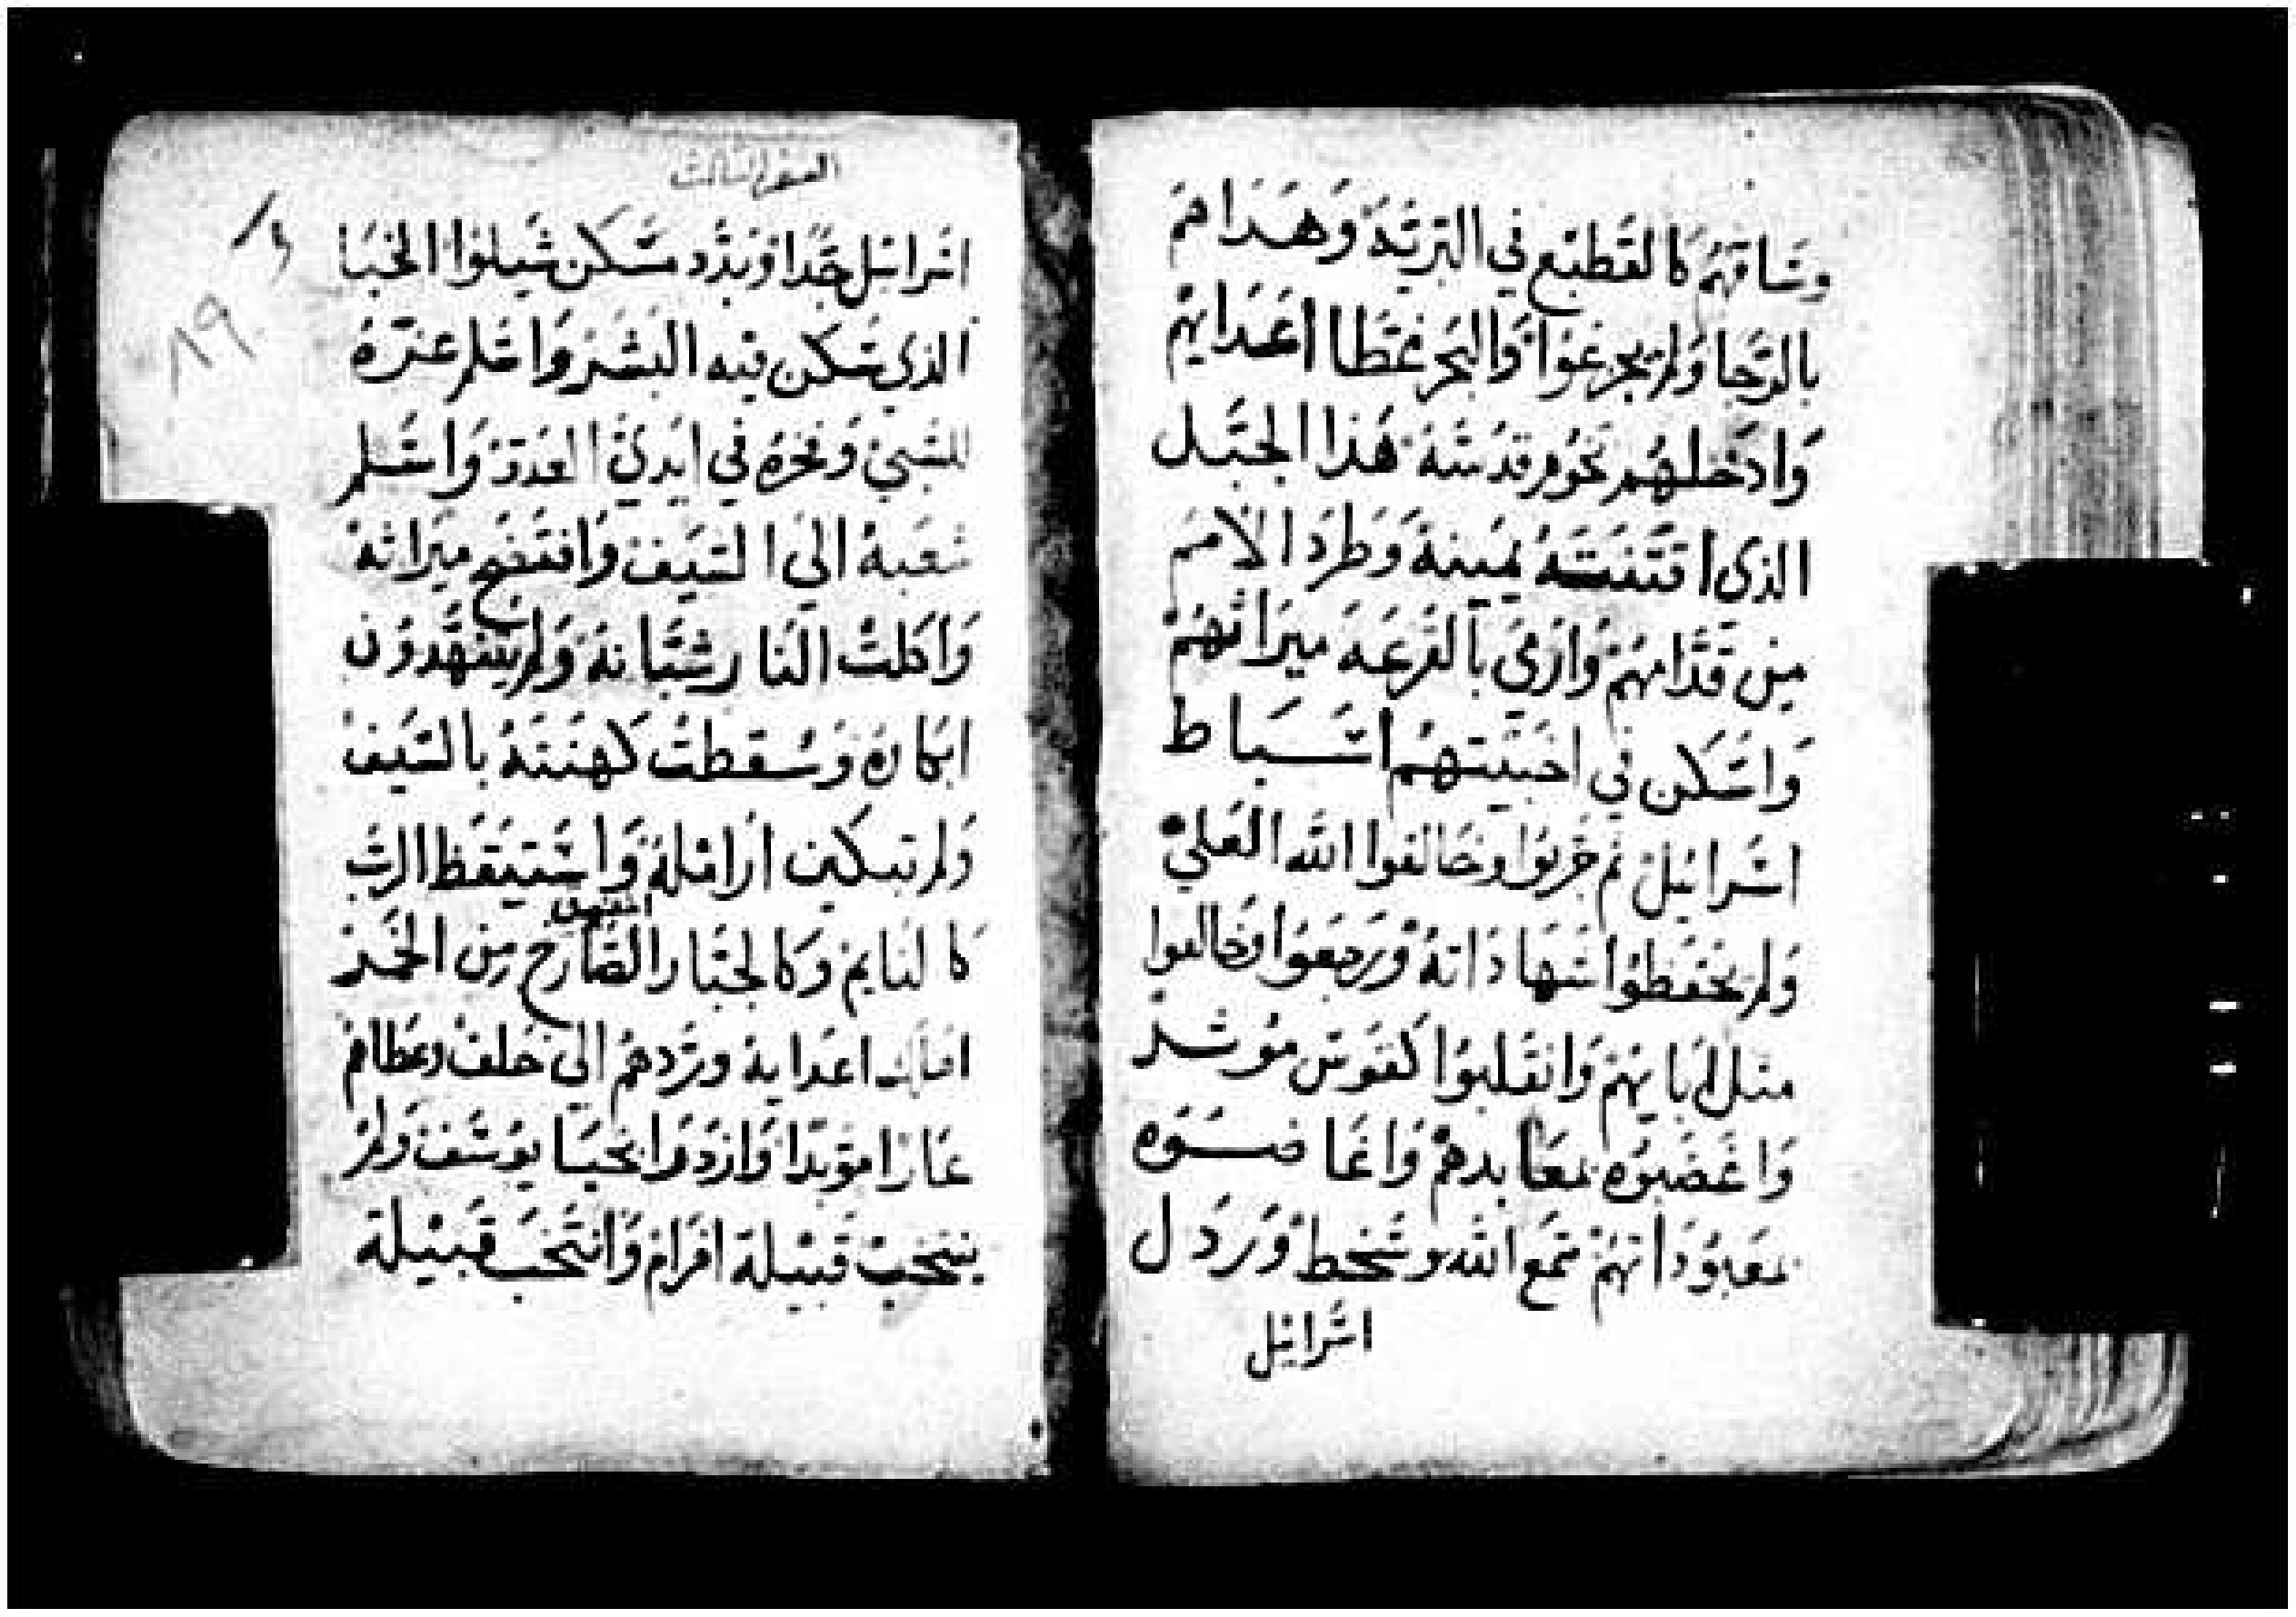 وساقهم كالقطيع في البريّة وهداهم
بالرّجا ولم يجزعوا والبحر غطا اعدايهم
وادخلهم تخوم قدسه هذا الجبل
الذي اقتنته يمينه وطرد الامم
من قدّامهم وارمي بالقرعه ميراثهم
واسكن في اخبيتهم اسباط
اسرائيل ثم جربوا وخالفوا الله العلي
ولم يحفظوا شهاداته ورجعوا وخالفوا
مثل ابايهم وانقلبوا كقوس موتر
واغضبوه بمعابدهم واغاضوه
بمعبوداتهم سمع الله وسخط ورذل
اسرائيل
السفر الثالث
اسرائيل جدا ونبذ مسكن شيلوا الخبا
الذي سكن فيه البشر واسلم عزه
للسبي وفخره في ايدي العدو واسلم
شعبه الي السيف وافتضح ميراثه
واكلت النار شبانه ولم يشهدون
ابكاره وسقطت كهنته بالسيف
ولم تبكين ارامله واستيقظ الرب
كالنايم وكالجبّار الصارخ من الخمر
اهلك اعدايه وردهم الي خلف وعطاهم
عارا موبدا وارذل خبا يوسف ولم
ينتخب قبيلة افرام وانتخب قبيلة